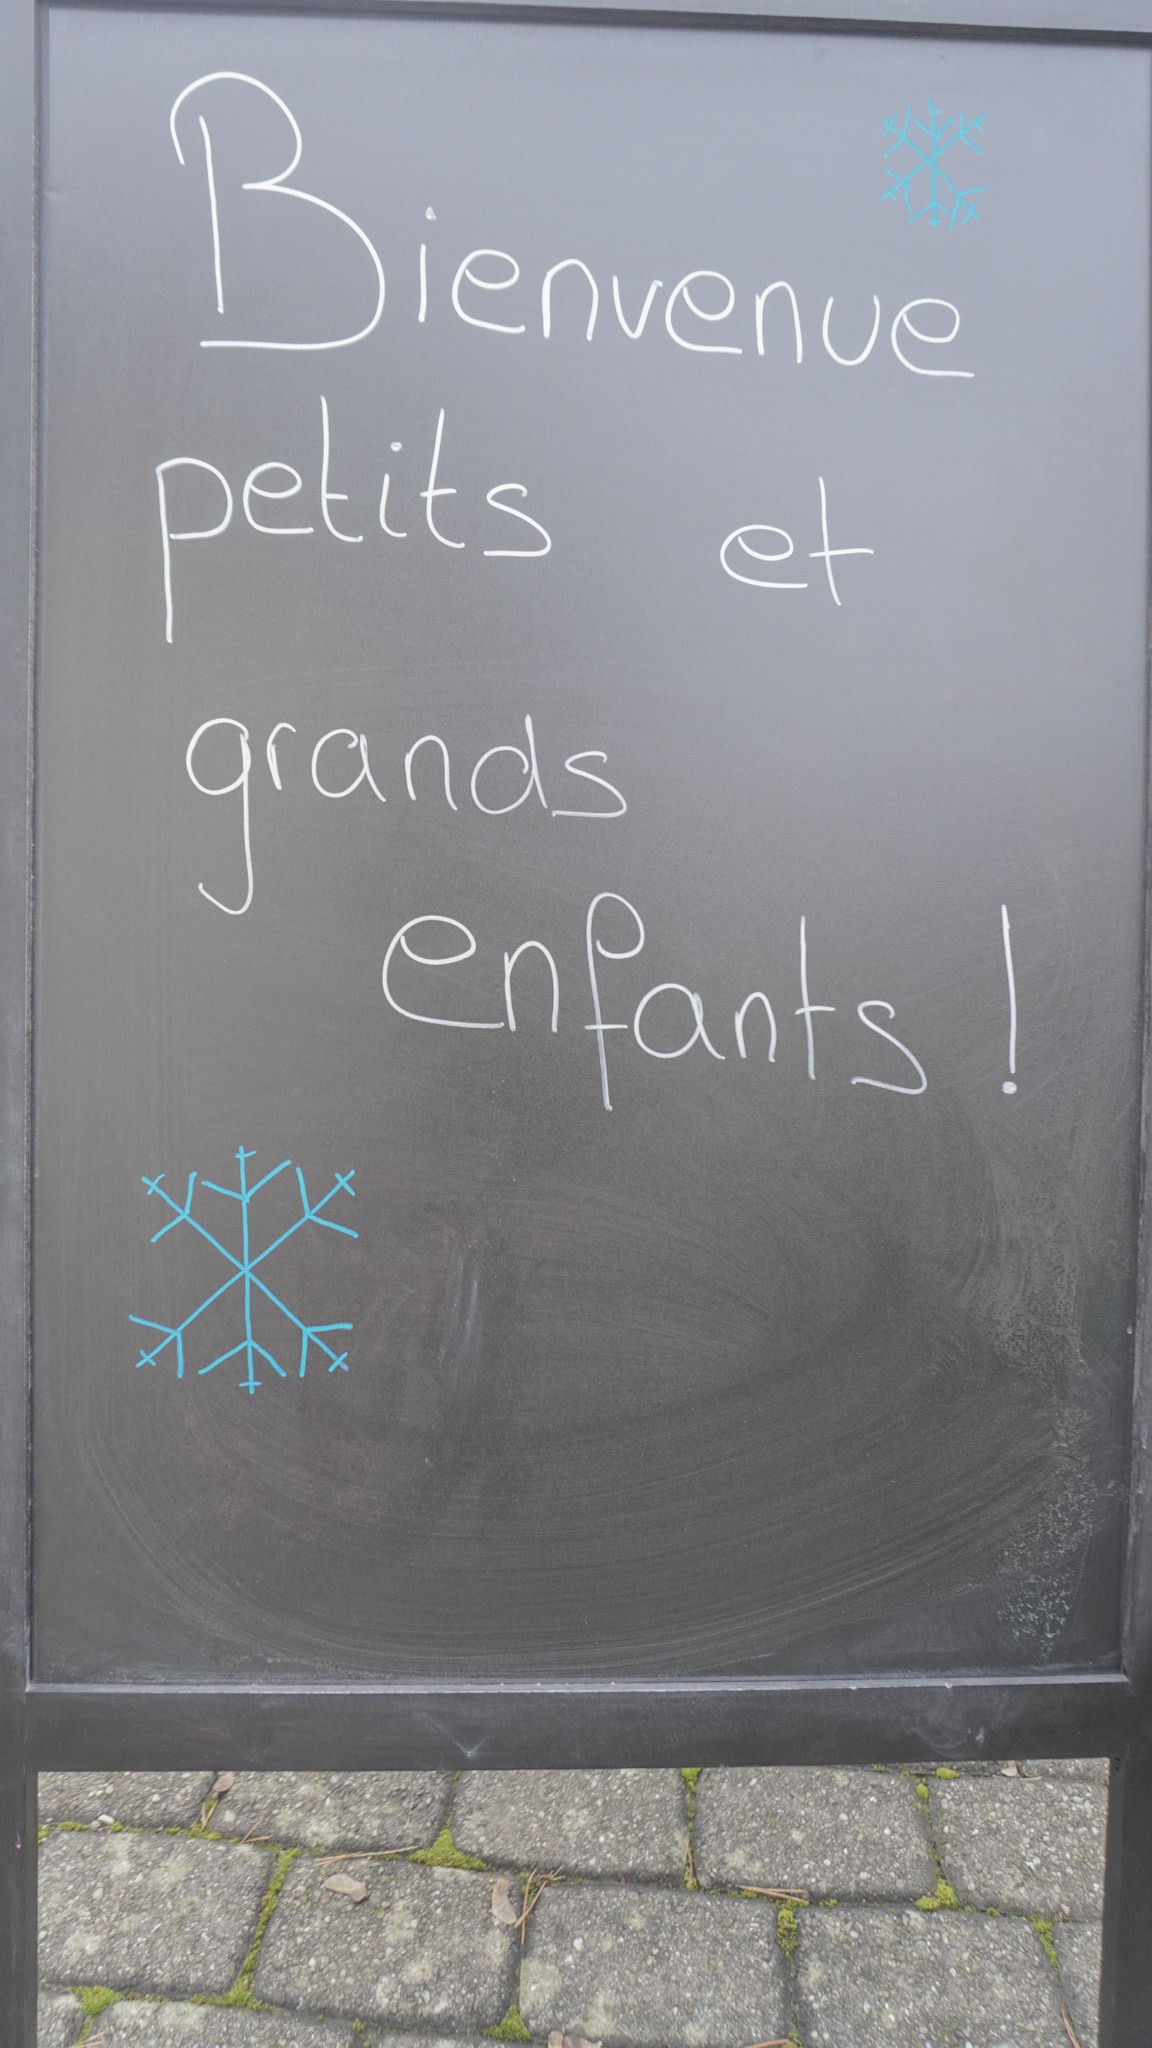 Bienvenue
petits et
grands
enfants !